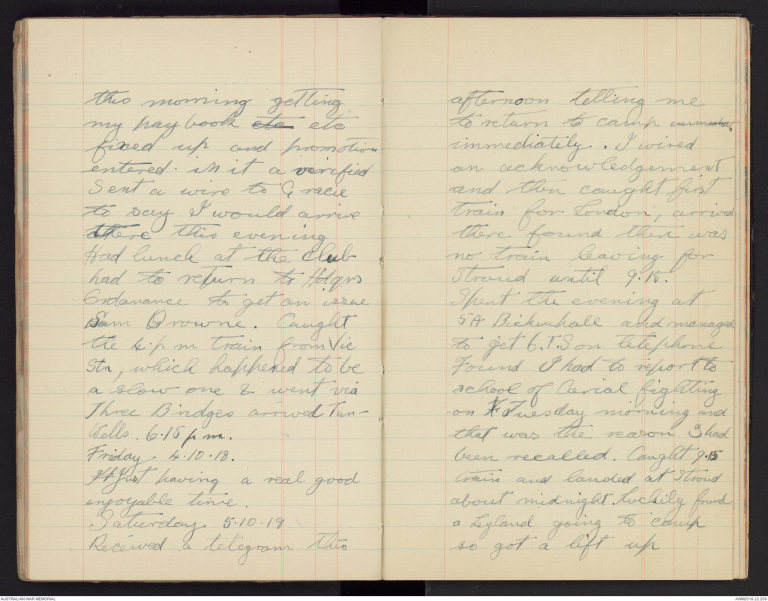 this morning getting
my pay book etc etc
fixed up and promotion
entered in it & verified
Sent a wire to Gracie
to say I would arrive
there this evening
Had lunch at the Club
had to return to Hdqrs
Ordanance to get an issue
Sam Browne. Caught
the 4. p m train from Vic
Stn, which happened to be
a slow one & went via
Three Bridges arrived Tun-
Wells. 6.15 p m.
Friday. 4.10.18.
Just having a real good
enjoyable time.
Saturday 5.10.18
Received a telegram this
afternoon telling me
to return to camp
immediately. I wired
an acknowledgement
and then caught first
train for London, arrived
there found there was
no train leaving for
Stroud until 9.15.
Spent the evening at
5A Bickenhall and managed
to get 6.T.S on telephone
Found I had to report to
school of Aerial fighting
on Tuesday morning and
that was the reason I had
been recalled. Caught 9.15
train and landed at Stroud
about midnight. Luckily found
a Leyland going to camp
so got a lift up
AUSTRALIAN WAR MEMORIAL